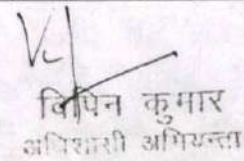 विपिन कुमार
अधिशासी अभियन्ता